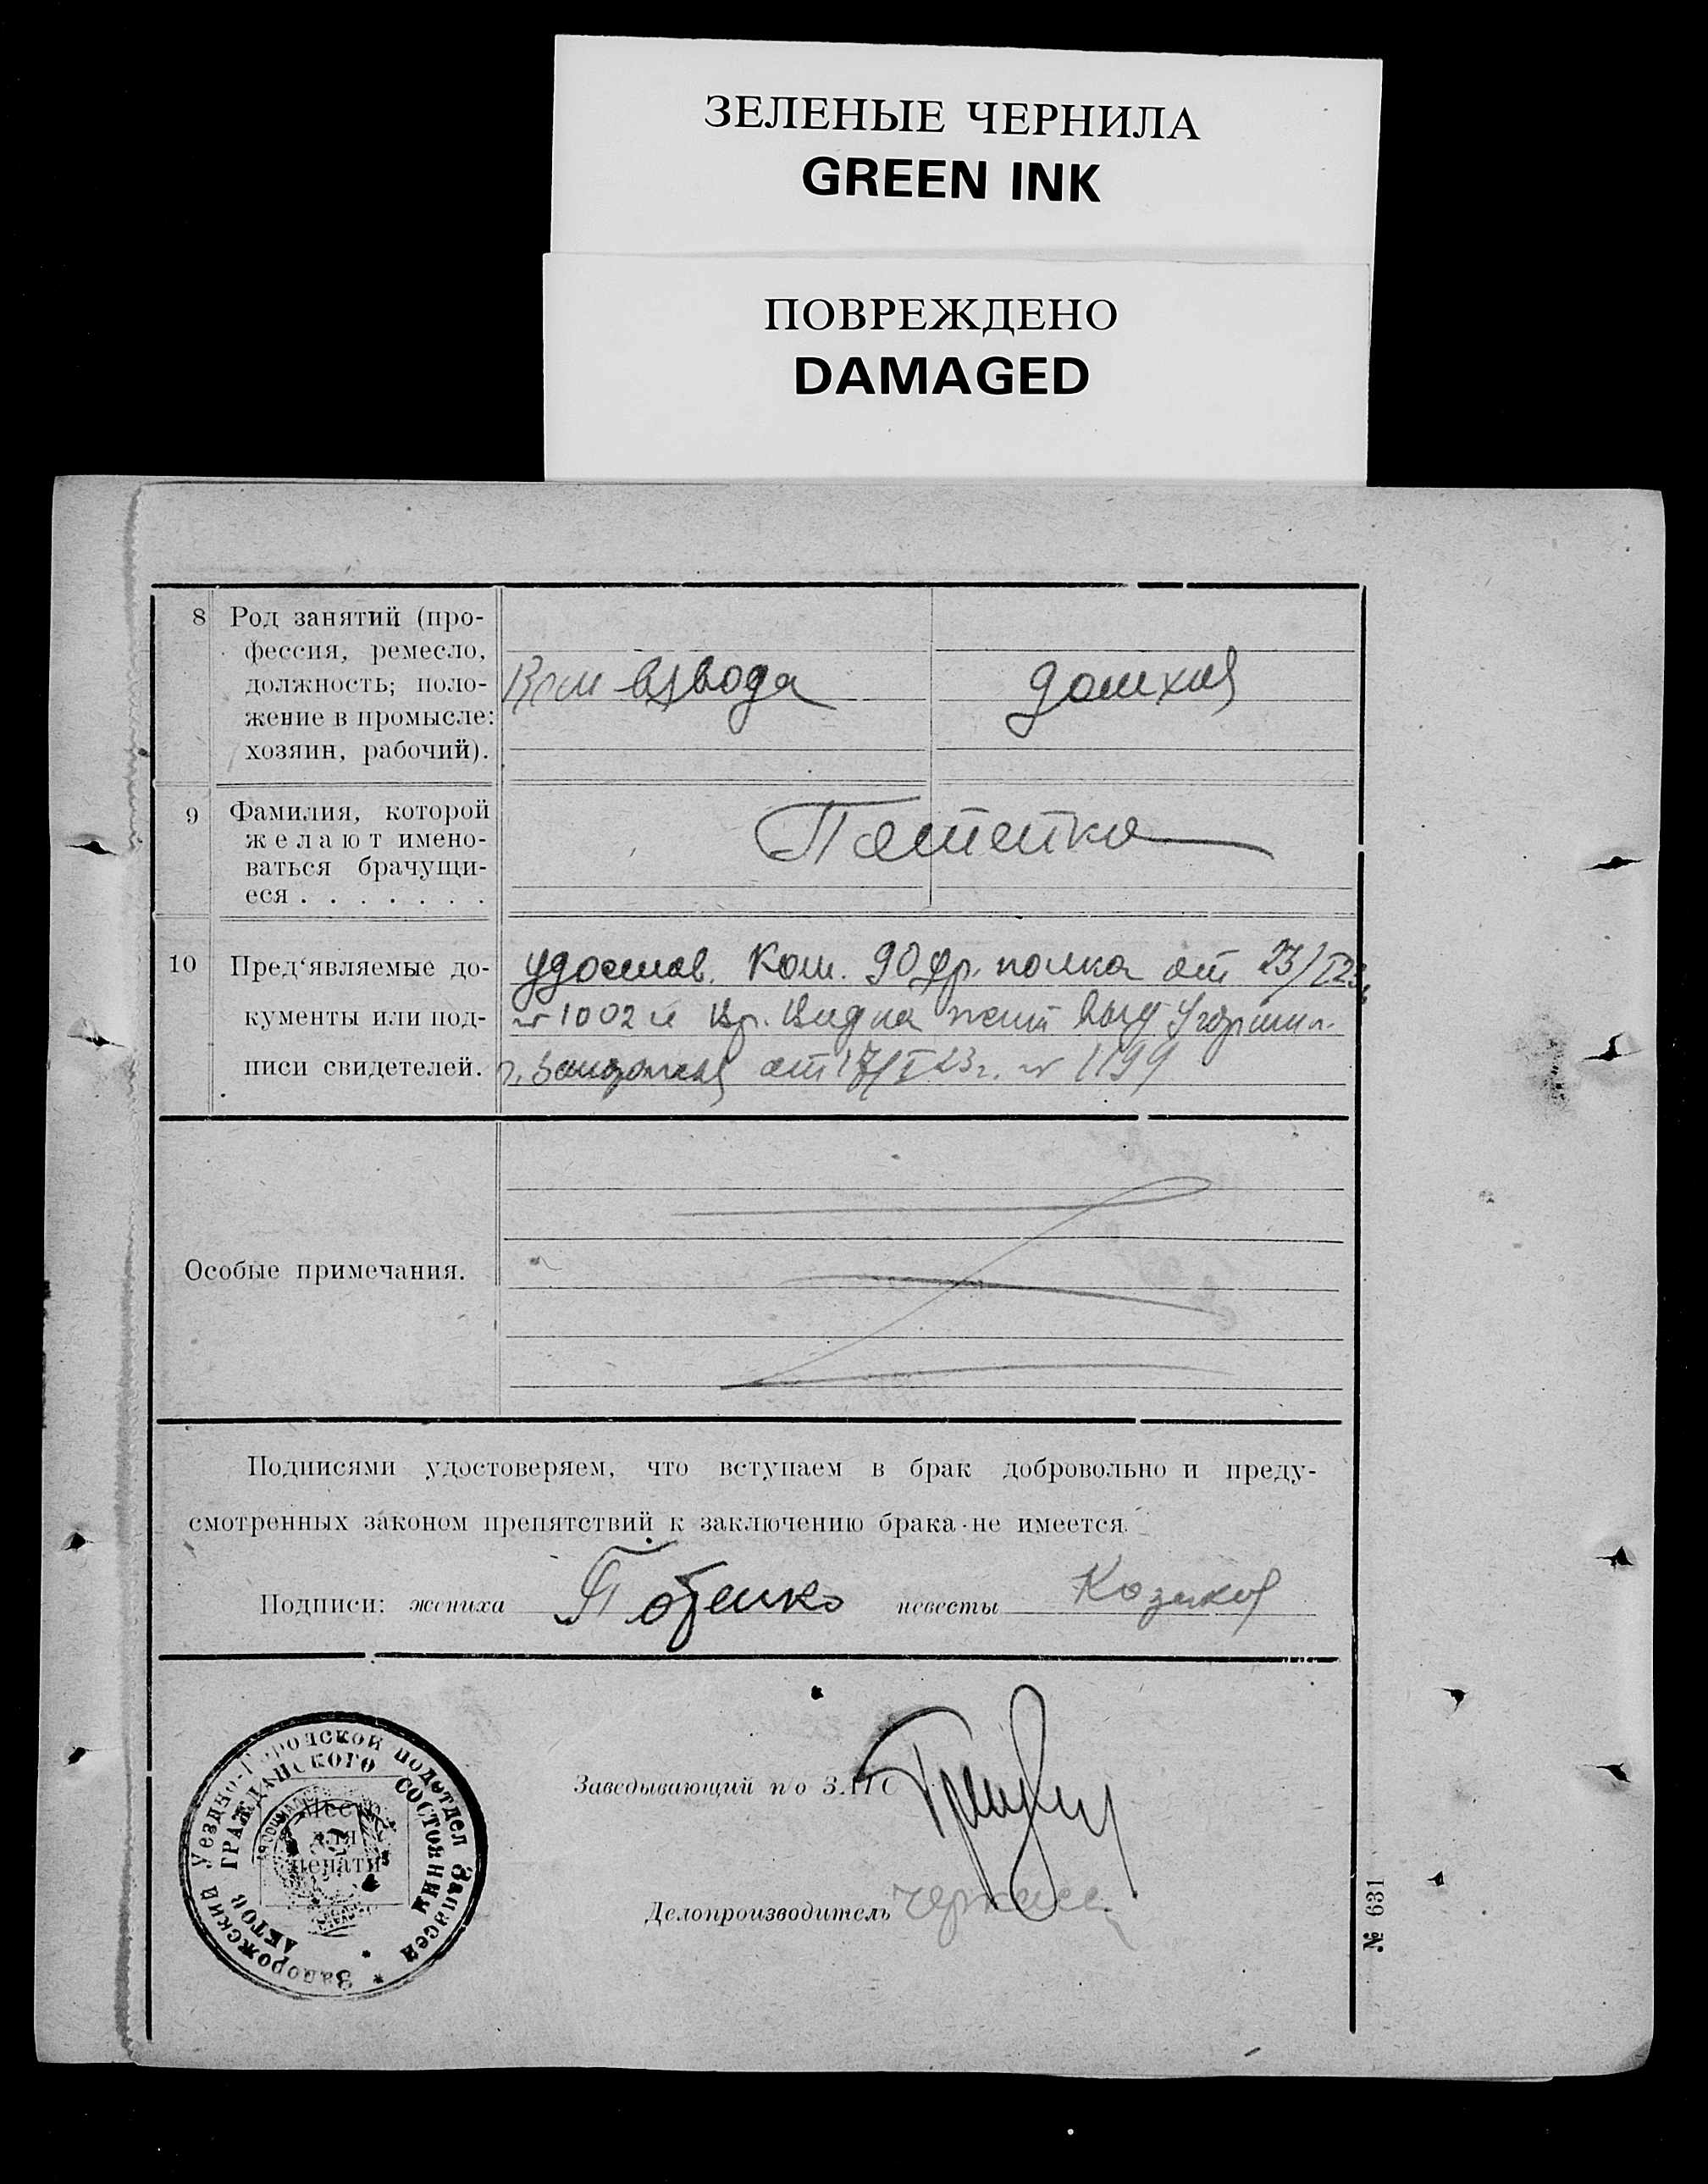 ЗЕЛЕНЫЕ ЧЕРНИЛА
GREEN INK
ПОВРЕЖДЕНО
DAMAGED
8 Род занятий (про-
фессия, ремесло,
должность; поло-
жение в промысле:
хозяин, рабочий).
Ком взвода
домхоз
9 Фамилия, которой
желают имено-
ваться брачущи-
еся . . . . . . .
10 Пред'являемые до-
кументы или под-
писи свидетелей.
удостов. Ком. 90 полка от 23/I 23
№ 1002 и вр. вид на жит
от 17/I 23 г. № 1199
Особые примечания.
Подписями удостоверяем, что вступаем в брак добровольно и преду-
смотренных законом препятствий к заключению брака не имеется.
Подписи: жениха невесты
Запорожский Уездно-Городской подотдел Записей
АКТОВ ГРАЖДАНСКОГО СОСТОЯНИЯ
Место
для
печати
Заведывающий п/о ЗАГС
Делопроизводитель
№ 631